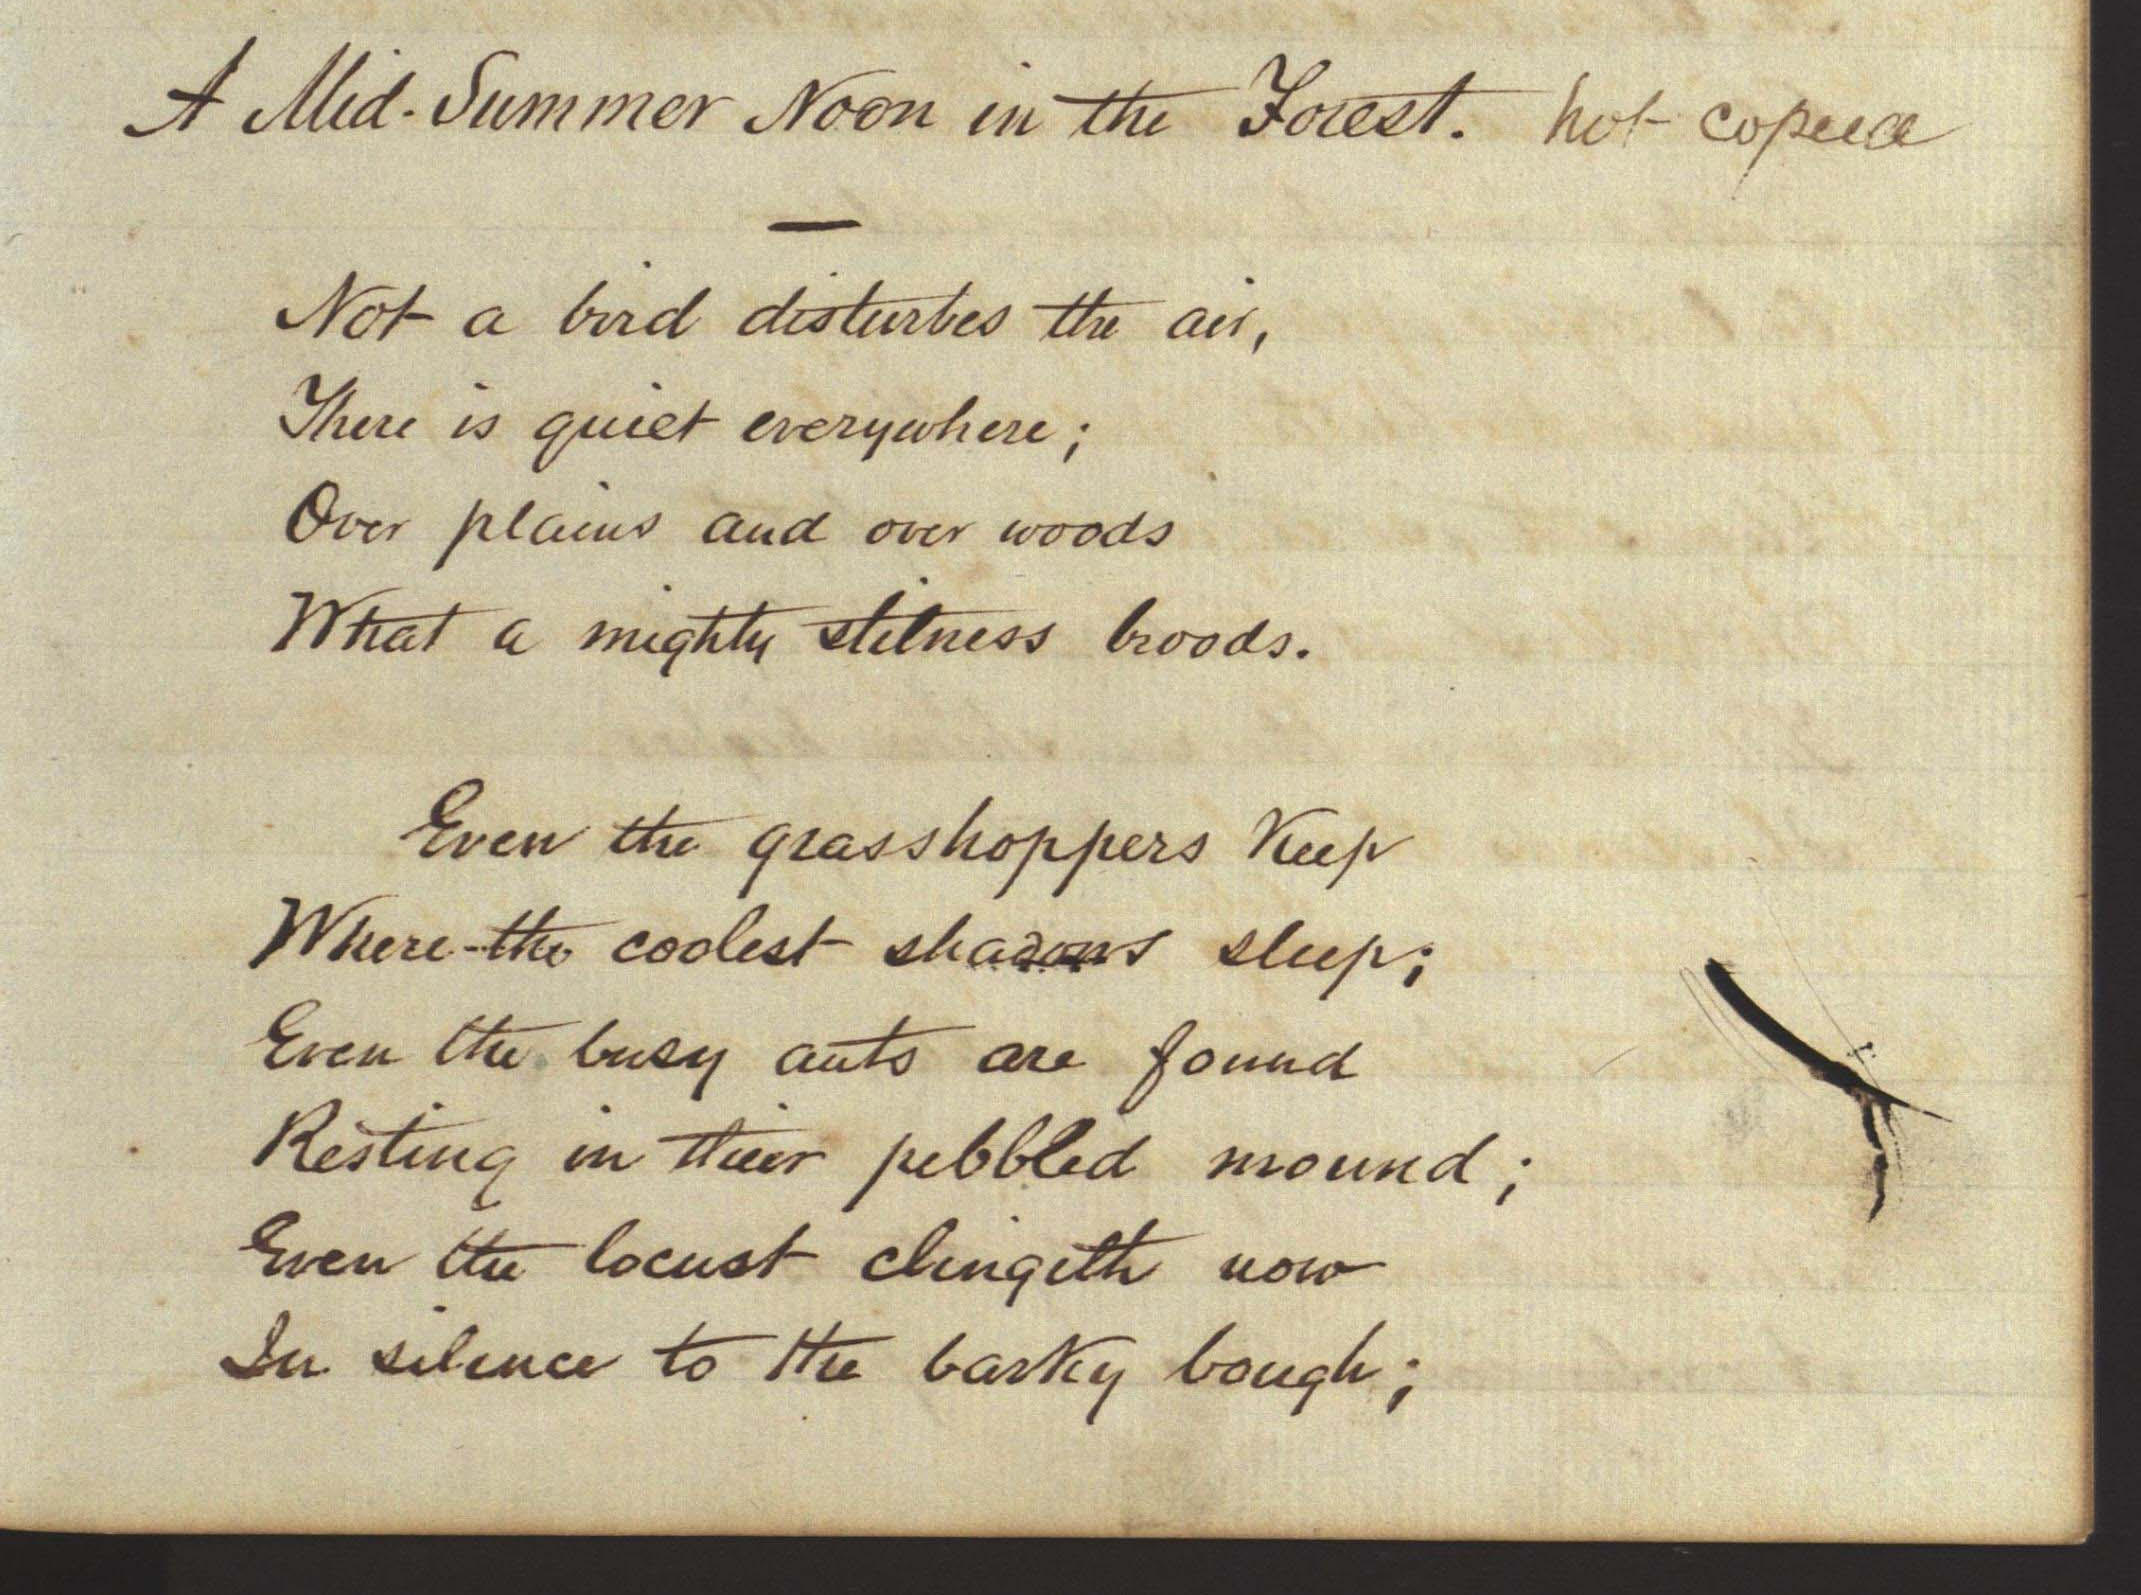 A Mid-Summer Noon in the Forest. not copied
Not a bird disturbes the air,
There is quiet everywhere;
Over plains and over woods
What a mighty stilness broods.
Even the grasshoppers keep
Where the coolest shadows sleep;
Even the busy ants are found
Resting in their pebbled mound;
Even the locust clingeth now
In silence to the barky bough;